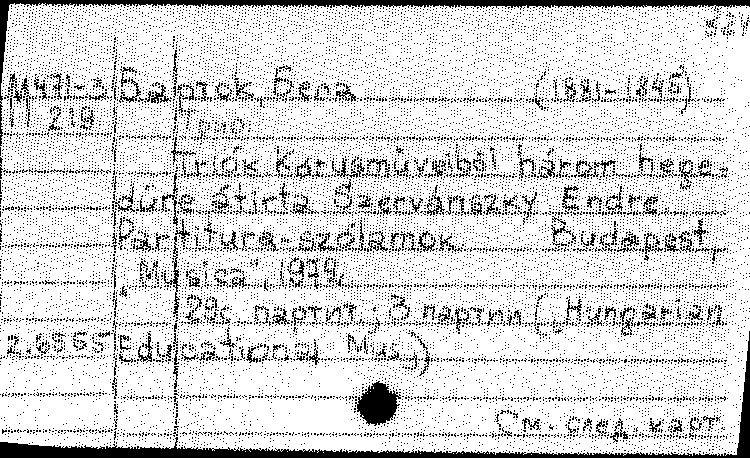 М471-3 Барток, Бела (1881-1945)
П 219 Трио.
Triók Kórusmüveiböl három hege-
düre átirta Szervánszky Endre.
Partitura-szólamok Budapest,
"Musica", 1979.
29с. партит.; 3 партии ("Hungarian
2.6955 Educational Mus.")
См. след. карт.